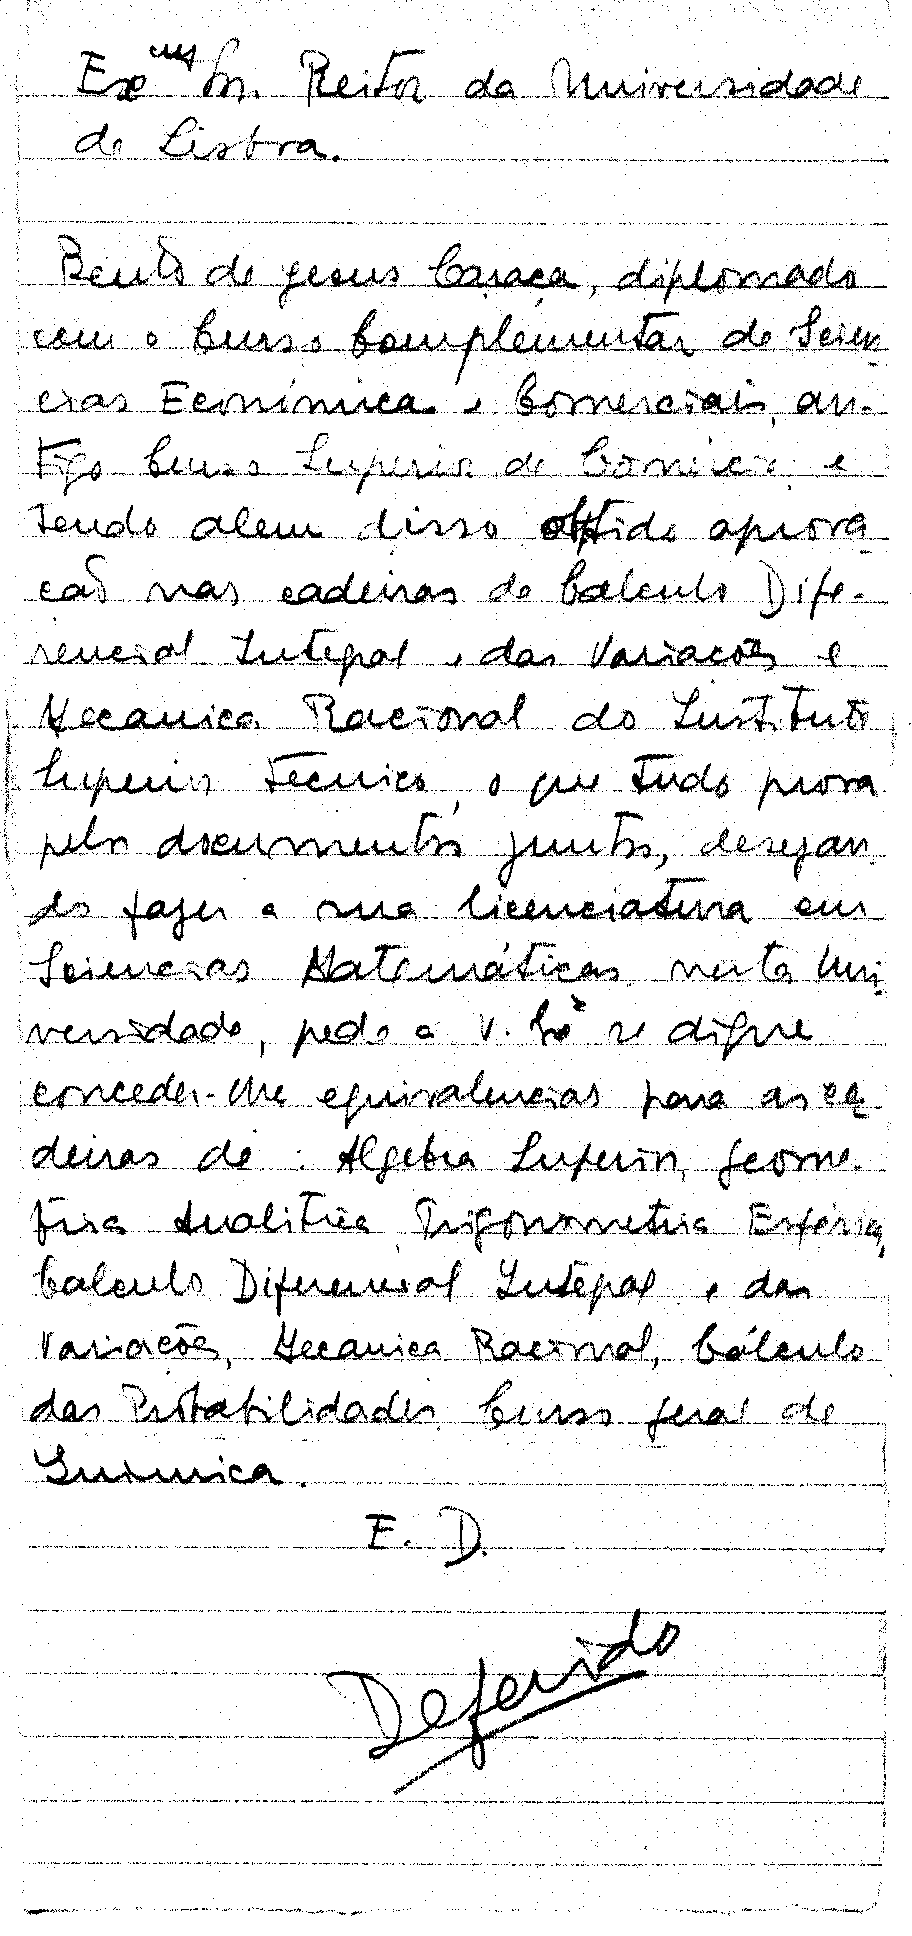 Exmo Sr. Reitor da Universidade
de Lisboa.
Bento de Jesus Caraça, diplomado
com o Curso Complementar de Scien-
cias Económicas e Comerciais, an-
tigo Curso Superior de Comércio, e
tendo alem disso obtido aprova-
ção nas cadeiras de Calculo Dife-
rencial Integral e das Variações e
Mecanica Racional do Instituto
Superior Técnico, o que tudo prova
pelos documentos juntos, desejan-
do fazer a sua licenciatura em
Sciencias Matemáticas nesta Uni-
versidade, pede a V. Exª se digne
conceder-lhe equivalencias para as ca-
deiras de: Algebra Superior, Geome-
tria Analitica, Trigonometria Esférica,
Calculo Diferencial Integral e das
Variações, Mecanica Racional, Cálculo
das Probabilidades, Curso geral de
Quimica.
E. D.
Deferido